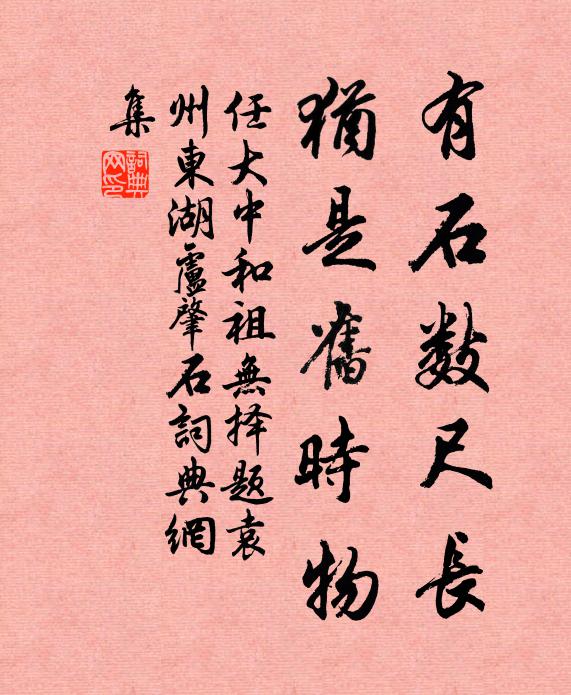 有石數尺長
猶是舊時物
任大中和祖無择題袁
州東湖盧肇石詞典網
集
詞典網印